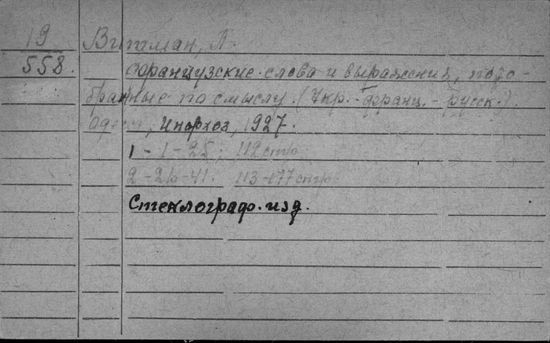 19
558.
Витман, Л.
Французские слова и выражения, подо-
бранные по смыслу. (Укр.-франц.-русск.)
Инархоз, 1927.
1 - 1-25; 112 стр.
2 - 26-41. 113-177 стр.
Стеклограф. изд.